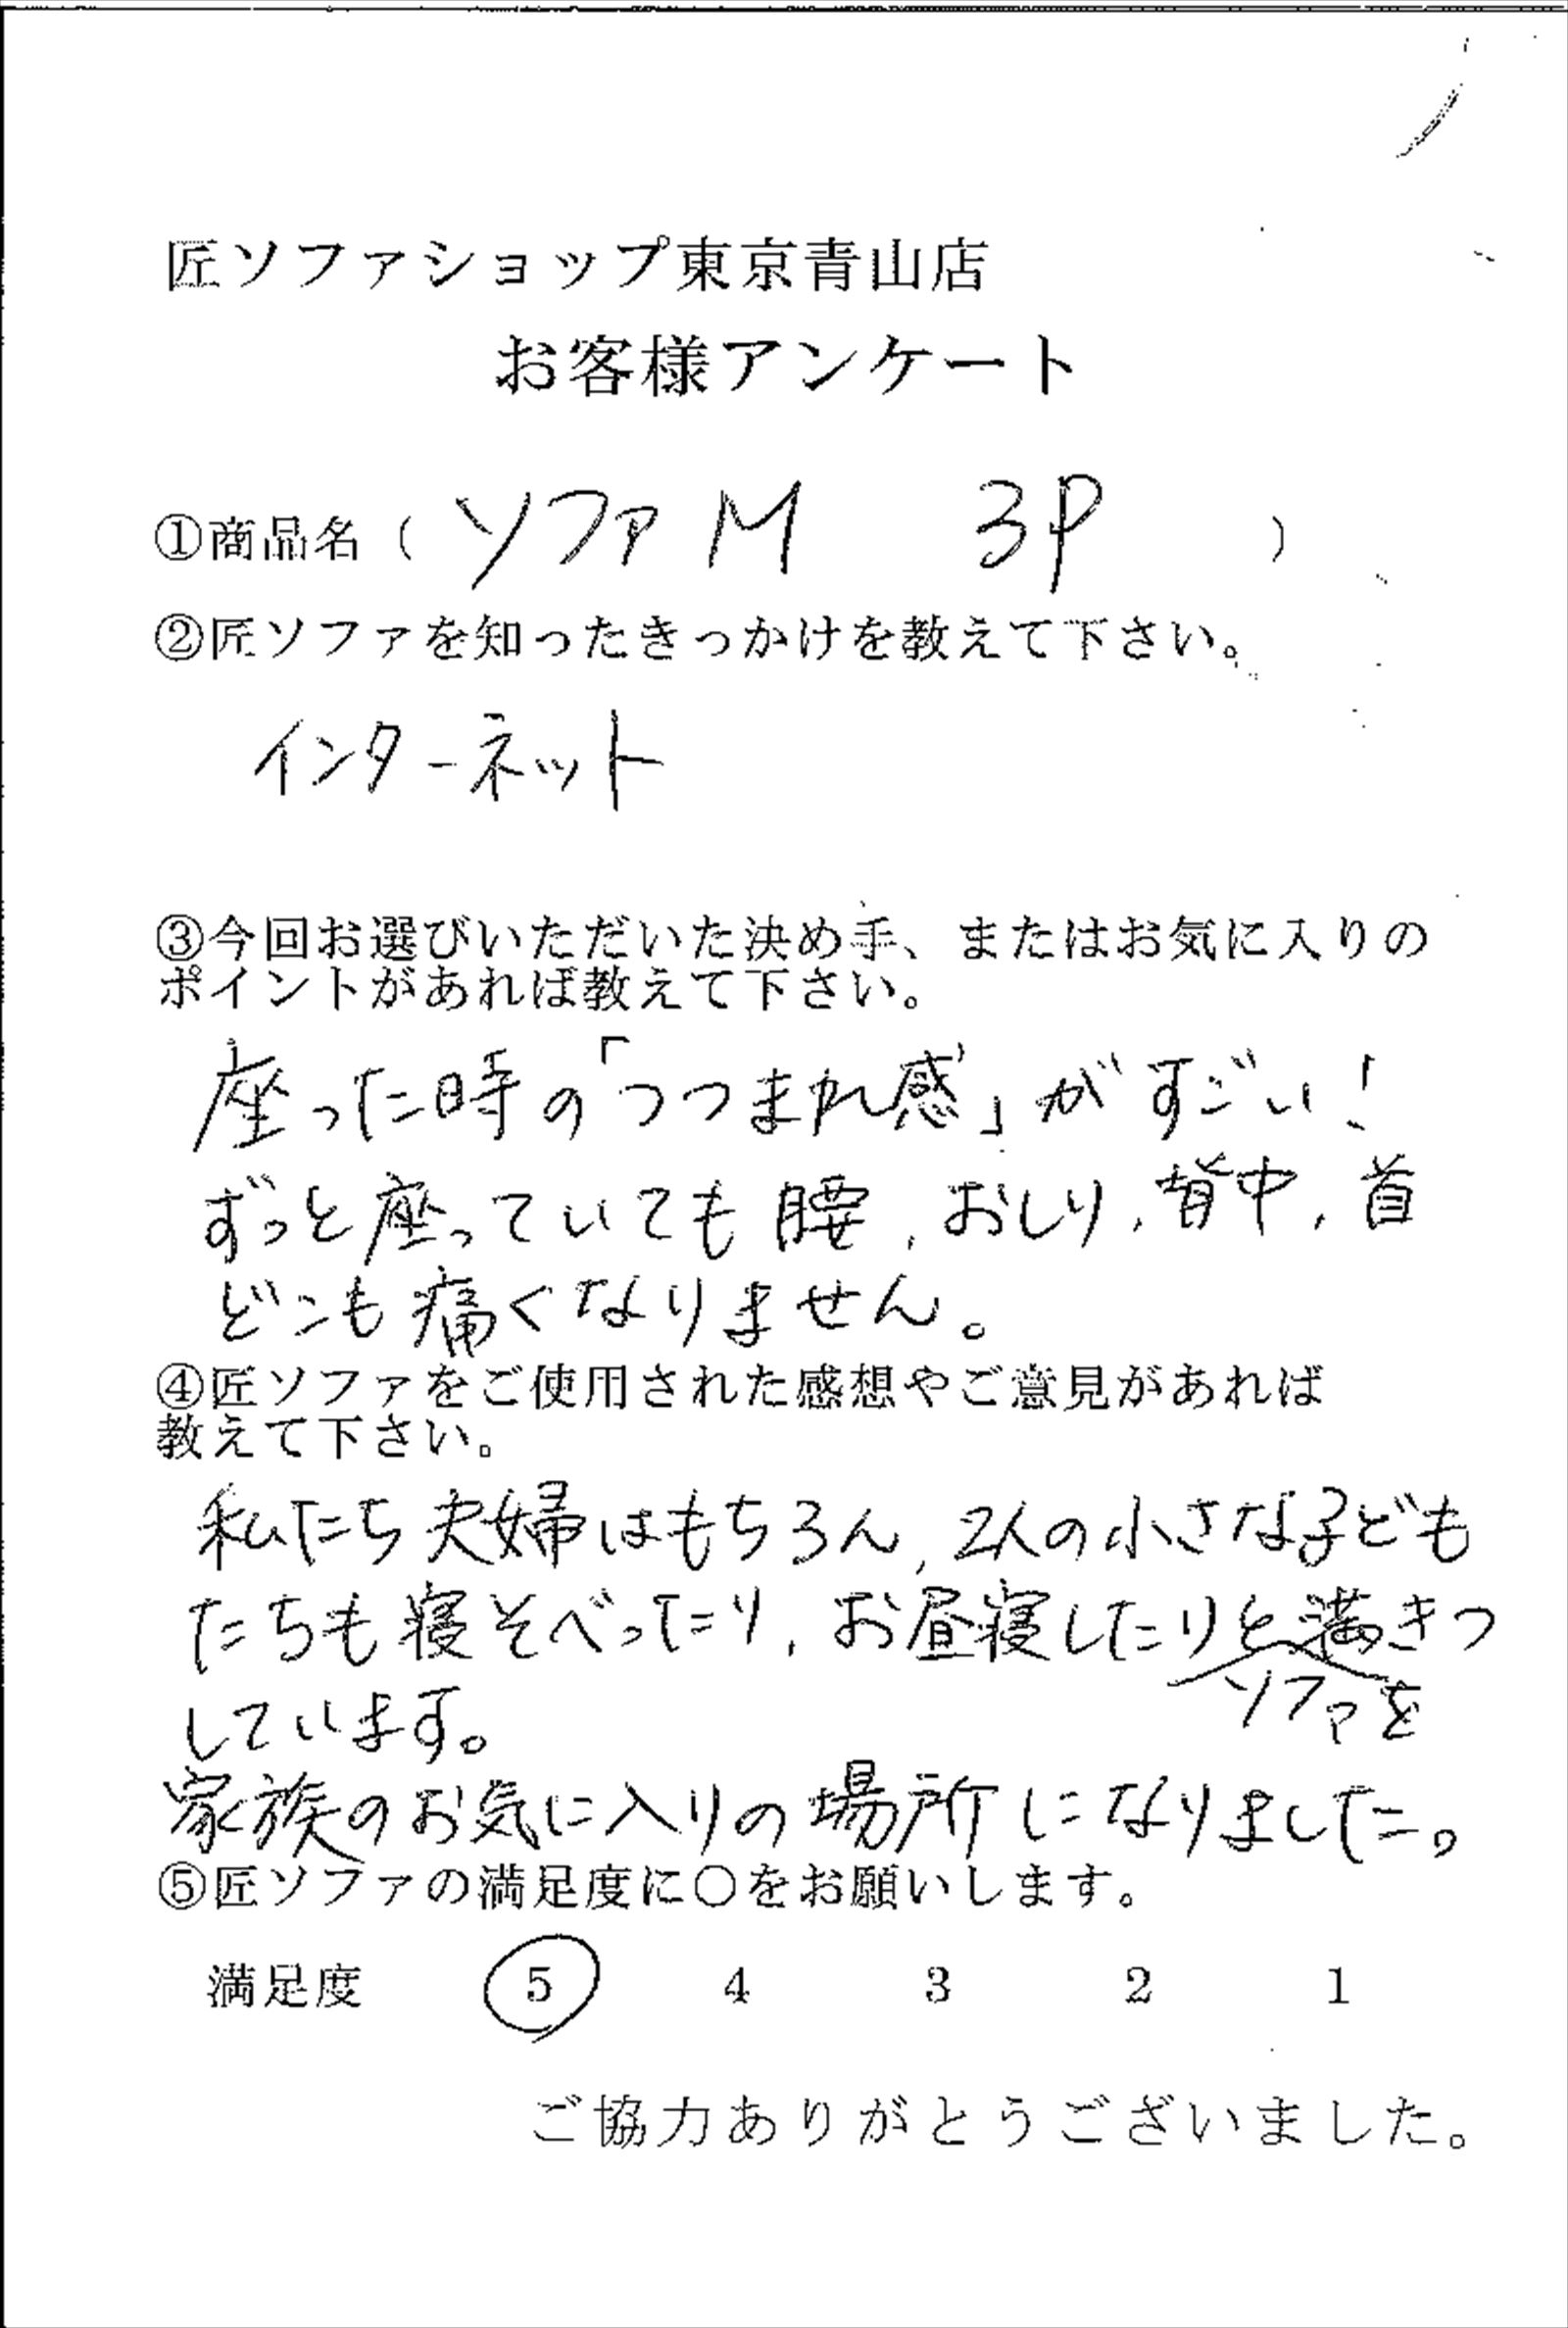 匠ソファショップ東京青山店
お客様アンケート
①商品名（ソファM 3P）
②匠ソファを知ったきっかけを教えて下さい。
インターネット
③今回お選びいただいた決め手、またはお気に入りの
ポイントがあれば教えて下さい。
座った時の「つつまれ感」がすごい！
ずっと座っていても腰、おしり、背中、首
どこも痛くなりません。
④匠ソファをご使用された感想やご意見があれば
教えて下さい。
私たち夫婦はもちろん、2人の小さな子ども
たちも寝そべったり、お昼寝したりと満きつ
ソファを
しています。
家族のお気に入りの場所になりました。
⑤匠ソファの満足度に○をお願いします。
満足度 5 4 3 2 1
ご協力ありがとうございました。